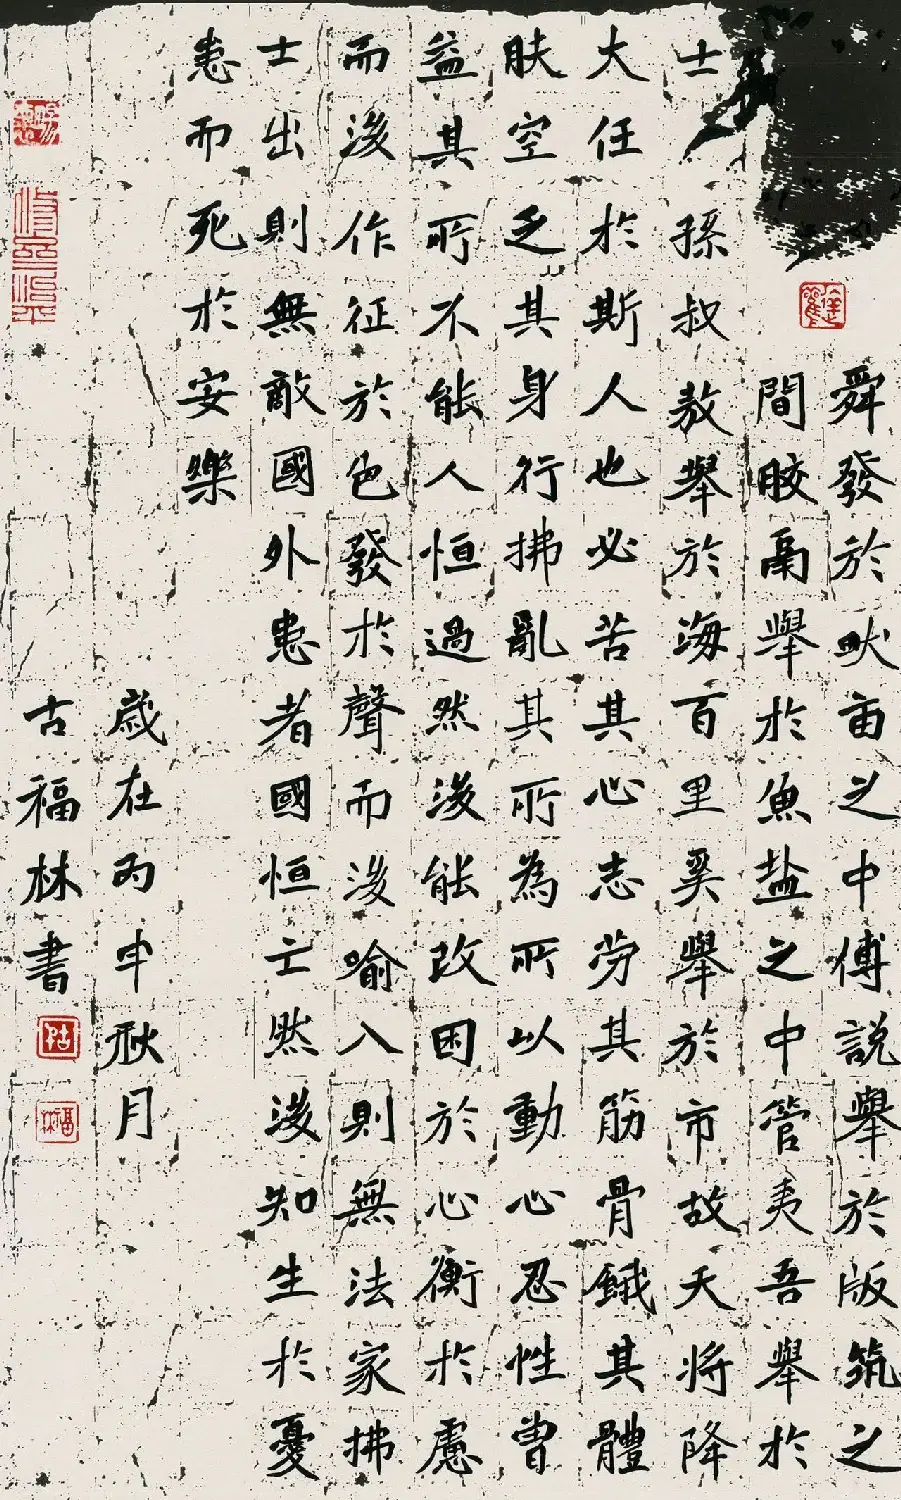 舜發於畎亩之中傅説舉於版筑之
間胶鬲舉於魚盐之中管夷吾舉於
士孫叔敖舉於海百里奚舉於市故天将降
大任於斯人也必苦其心志劳其筋骨餓其體
肤空乏其身行拂亂其所為所以動心忍性曾
益其所不能人恒過然後能改困於心衡於慮
而後作征於色發於聲而後喻入則無法家拂
士出則無敵國外患者國恒亡然後知生於憂
患而死於安樂
歲在丙申秋月
古福林書